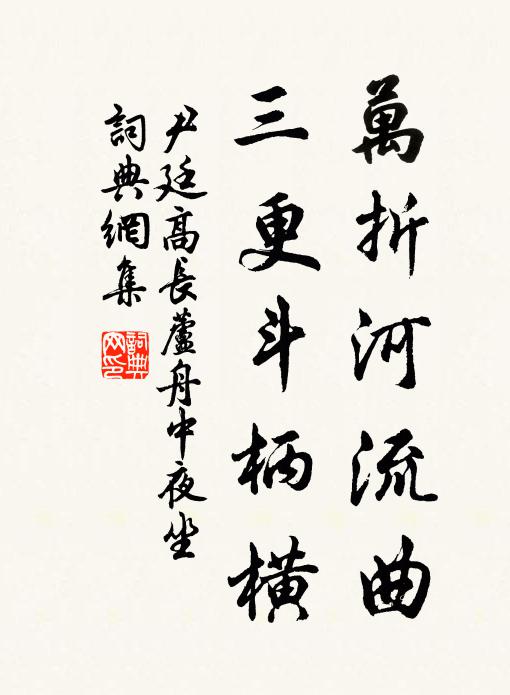 萬折河流曲
三更斗柄橫
尹廷高長蘆舟中夜坐
詞典網集
詞典網印